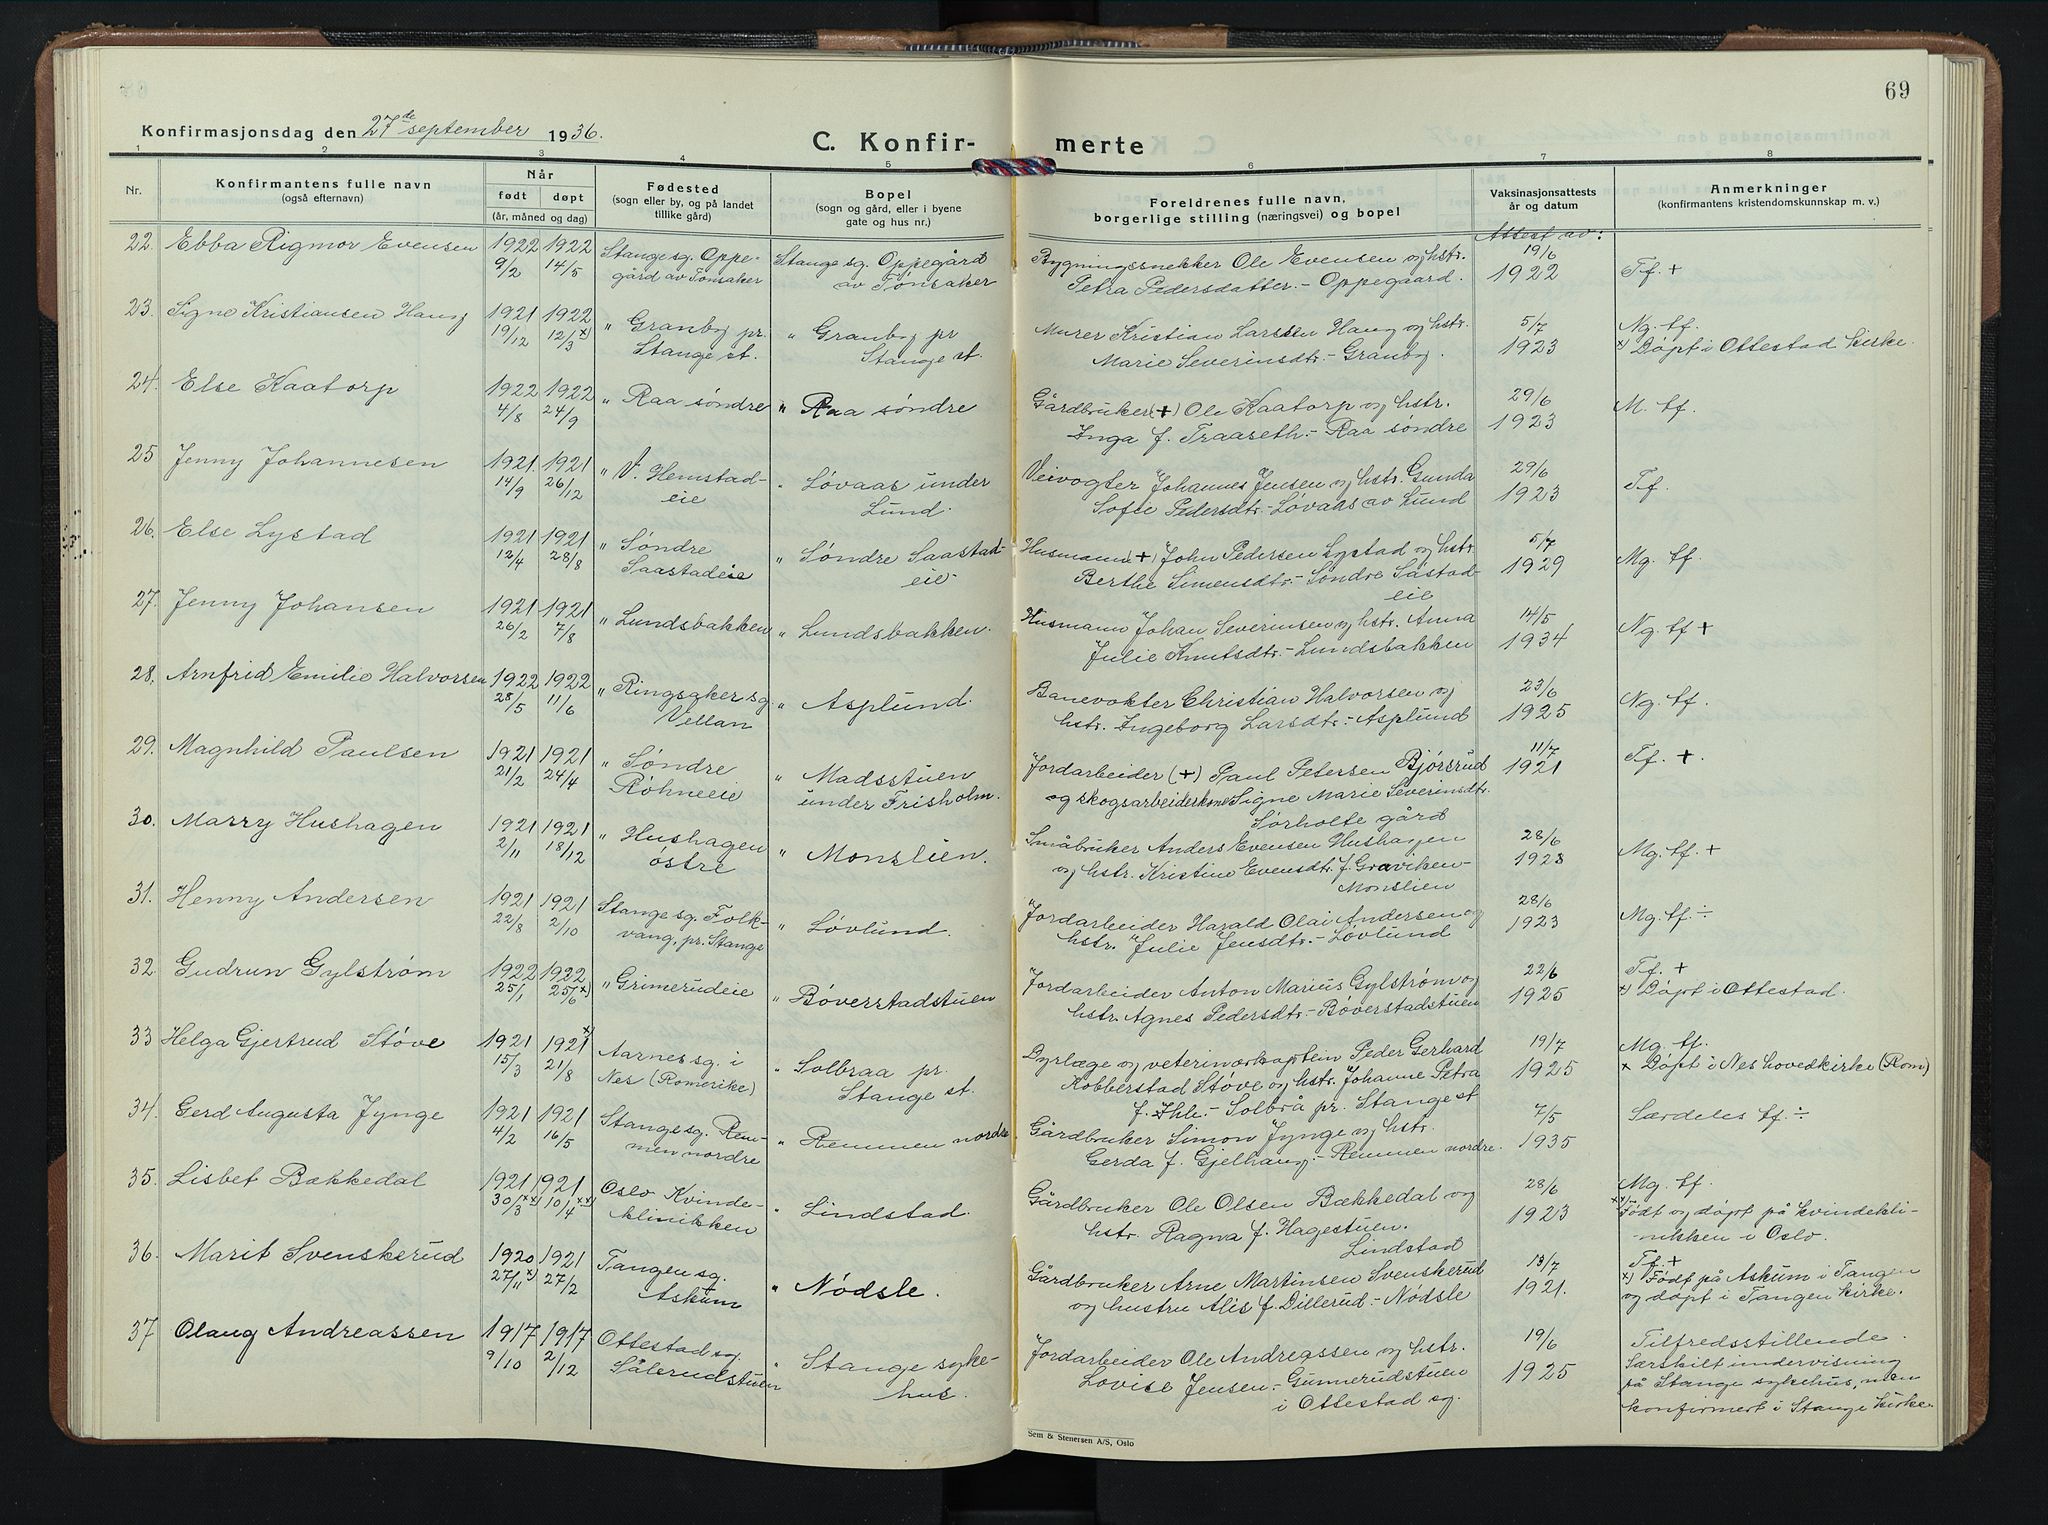 69
Konfirmasjonsdag den 27de september 1936.
C. Konfir- merte
1 2 3 4 5 6 7 8
Nr.
Konfirmantens fulle navn
(også efternavn)
Når
født døpt
(år, måned og dag)
Fødested
(sogn eller by, og på landet
tillike gård)
Bopel
(sogn og gård, eller i byene
gate og hus nr.)
Foreldrenes fulle navn,
borgerlige stilling (næringsvei) og bopel
Vaksinasjonsattests
år og datum
Anmerkninger
(konfirmantens kristendomskunnskap m. v.)
Attest av:
22. Ebba Rigmor Evensen 1922 1922 Stange sg. Oppe- Stange sg. Oppegård Bygningssnekker Ole Evensen og hstr. 19/6
9/2 14/5 gård av Tønsaker av Tønsaker Petra Pedersdatter. - Oppegaard. 1922 Tf. +
23. Signe Kristiansen Haug 1921 1922 " Granbog pr. " Granbog pr Murer Kristian Larssen Haug og hstr. 5/7 Ng. tf.
19/12 12/3 x) Stange st. Stange st. Marie Severinsdtr. - Granbog. 1923 x) Døpt i Ottestad kirke.
24. Else Kaatorp 1922 1922 " Raa søndre " Raa søndre Gårdbruker (+) Ole Kaatorp og hstr. 29/6 M. tf.
4/8 24/9 Inga f. Traaseth. - Raa søndre 1923
25 Jenny Johannesen 1921. 1921 " V. Hemstad- " Løvaas under Veivogter Johannes Jensen og hstr. Gunda 29/6
14/9 26/12 eie Lund. Sofie Pedersdtr. - Løvaas av Lund 1923 Tf.
26. Else Lystad 1921 1921 " Søndre " Søndre Saastad- Husmann (+) John Pedersen Lystad og hstr. 5/7
12/4 28/8 Saastadeie eie. Berthe Simensdtr. - Søndre Såstad- 1929 Mg. tf.
eie
27. Jenny Johansen 1921 1921 " Lundsbakken " Lundsbakken. Husmann Johan Severinsen og hstr. Anna 14/5
26/2 7/8 Julie Knutsdtr. - Lundsbakken 1934 Ng. tf +
28. Arnfrid Emilie Halvorsen 1922 1922 " Ringsaker sg. " Asplund. Banevokter Christian Halvorsen og 23/6
28/5 11/6 Vellan hstr. Ingeborg Larsdtr. - Asplund 1925 Ng. tf.
29. Magnhild Paulsen 1921 1921 " Søndre " Madsstuen Jordarbeider (+) Paul Petersen Bjørsrud 11/7 Tf. +.
21/2 24/4 Røhneeie under Frisholm. og skogsarbeiderkone Signe Marie Severinsdtr. 1921
Sørholte gård
30. Marry Hushagen 1921 1921 " Hushagen " Monslien. Småbruker Anders Evensen Hushagen 28/6
2/11 18/12 østre og hstr. Kristine Evensdtr. f. Graviken - 1923 Mg. tf. +
Monslien
31. Henny Andersen 1921 1921 Stange sg. Folk- " Løvlund. Jordarbeider Harald Olai Andersen og 28/6
22/8 2/10 vang, pr. Stange hstr. Julie Jensdtr. - Løvlund 1923 Mg. tf. ÷
32. Gudrun Gylstrøm 1922 1922 " Grimerudeie " Bøverstadstuen Jordarbeider Anton Marius Gylstrøm og 22/6 Tf. +
25/1 25/6 x) hstr. Agnes Pedersdtr. - Bøverstadstuen 1925 x) Døpt i Ottestad.
33 Helga Gjertrud Støve 1921 1921 x) Aarnes sg. i " Solbraa pr. Dyrlæge og veterinærkaptein Peder Gerhard 19/7 Mg. tf.
15/3 21/8 Nes (Romerike) Stange st. Kobberstad Støve og hstr. Johanne Petra 1925 x Døpt i Nes hovedkirke (Rom)
f. Ihle. - Solbrå pr. Stange st
34. Gerd Augusta Jynge 1921 1921 Stange sg. Rem- " Remmen nordre Gårdbruker Simon Jynge og hstr. 7/5 Særdeles tf. ÷
4/2 16/5 men nordre Gerda f. Gjelhaug. - Remmen nordre. 1935
35. Lisbet Bækkedal 1921 1921 Oslo Kvinde- " Lindstad. Gårdbruker Ole Olsen Bækkedal og 28/6 Mg. tf.
30/3 xx) 10/4 xx) klinikken hstr. Ragna f. Hagestuen. 1923 xx) Født og døpt på kvindekli-
Lindstad -nikken i Oslo.
36. Marit Svenskerud 1920 1921 Tangen sg. " Nødsle. Gårdbruker Arne Martinsen Svenskerud 13/7 Tf. +
27/11 x) 27/2 Askum og hustru Alis f. Dillerud. - Nødsle 1921. x) Født på Askum i Tangen
og døpt i Tangen kirke.
37 Olaug Andreassen 1917 1917 Ottestad sg. " Stange syke- Jordarbeider Ole Andreassen og hstr. 19/6 Tilfredsstillende.
9/10 2/12 Sålerudstuen hus. Lovise Jensen. - Gunnerudstuen 1925 Særskilt undervisning
i Ottestad sg. på Stange sykehus, men
konfirmert i Stange kirke.
Sem & Stenersen A/S, Oslo